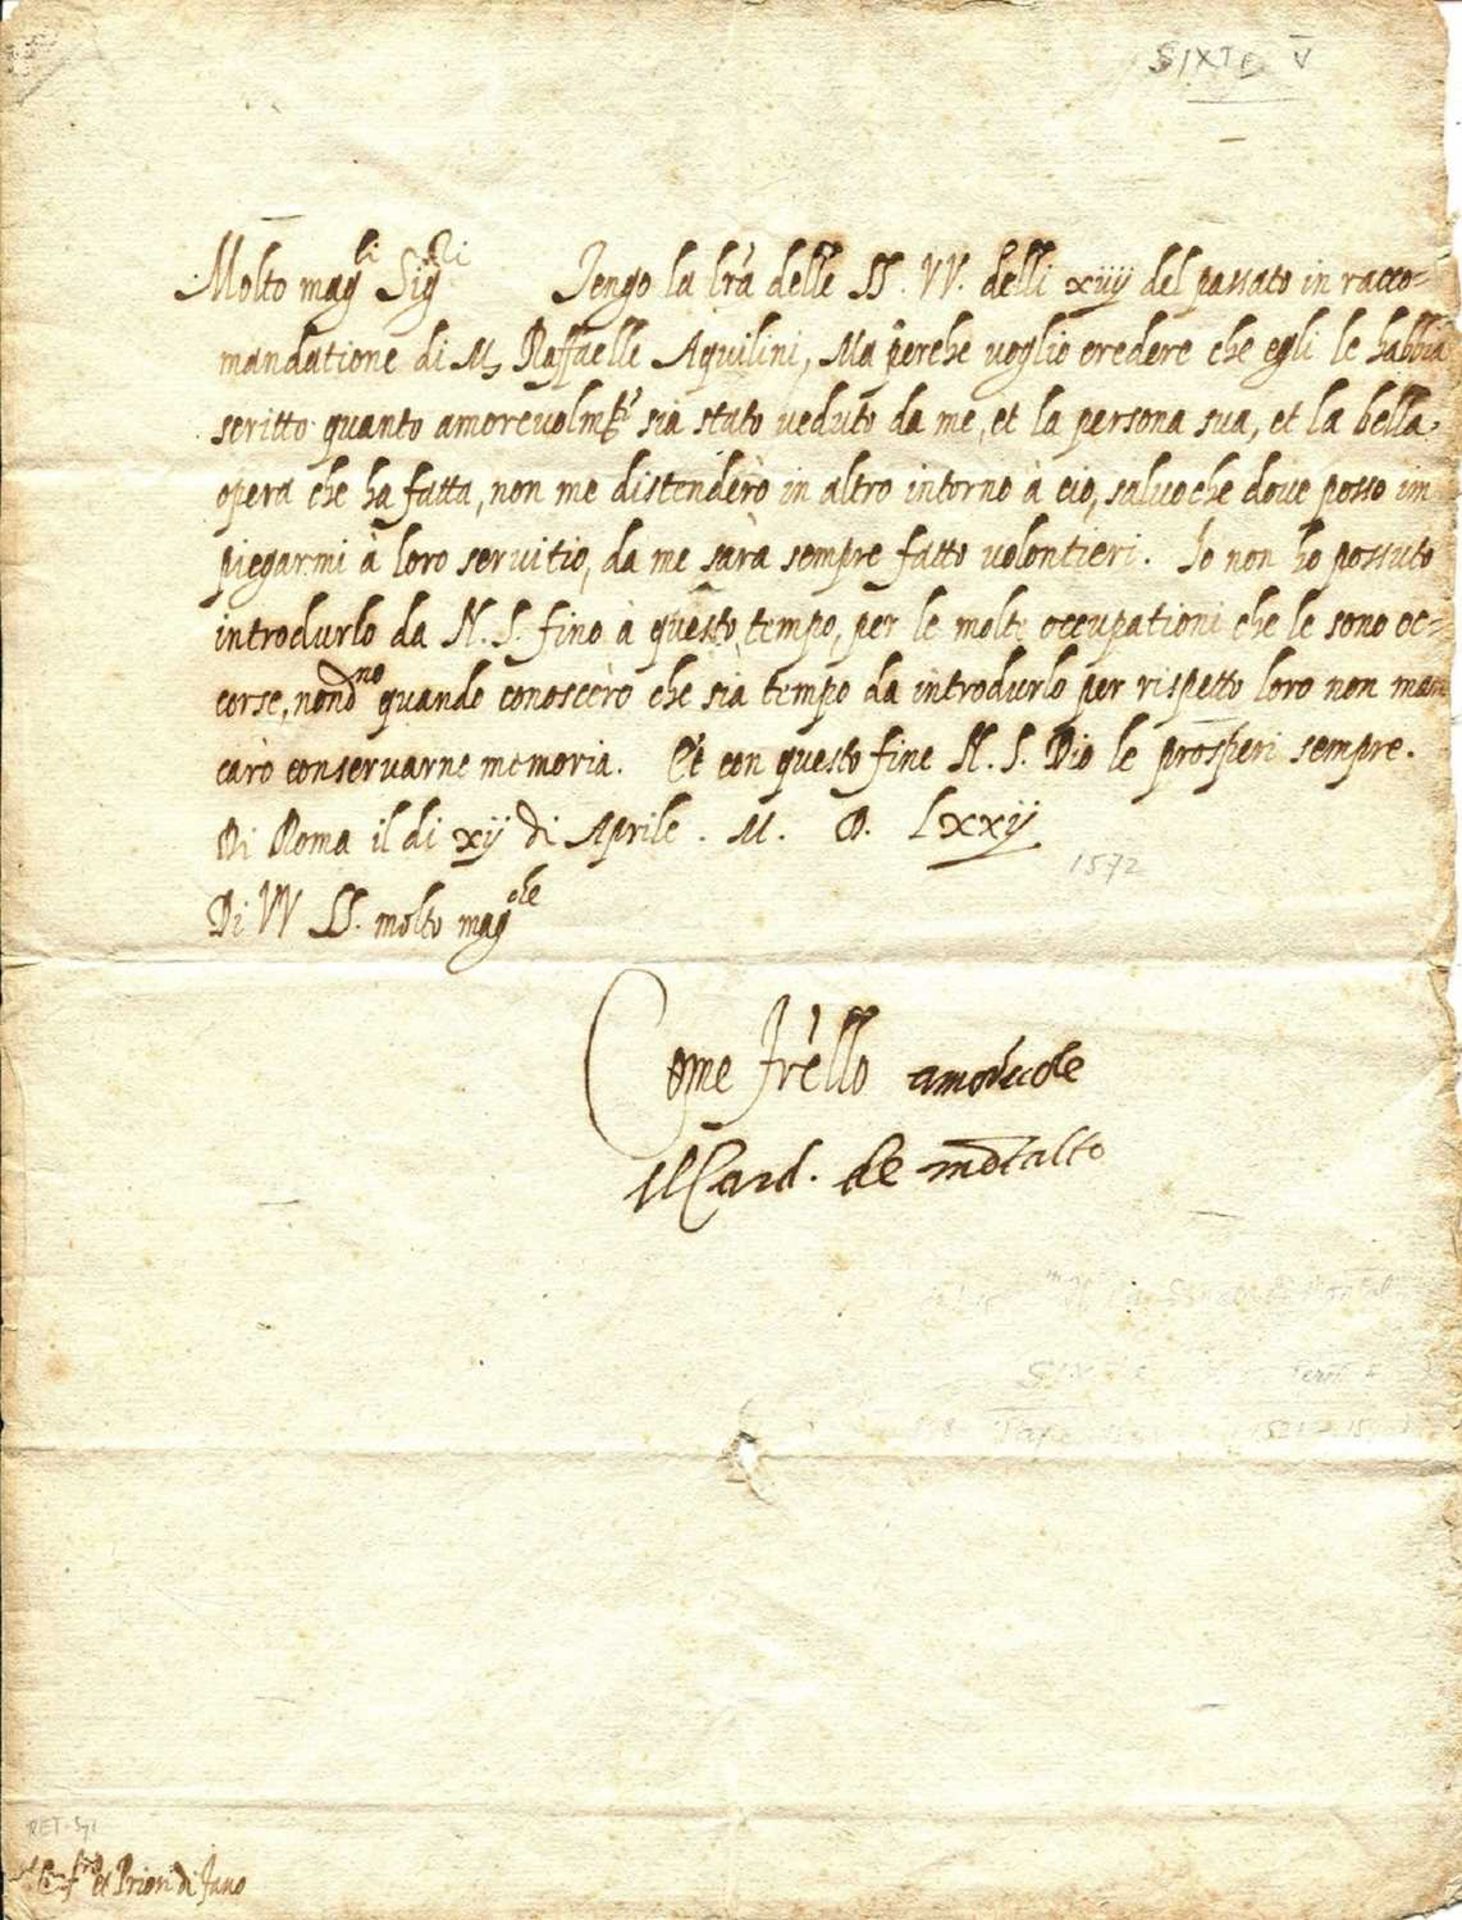 SIXTE V
Molto mag.ci Sig.ri Tengo la lra delle SS. VV. delli xiiij del passato in racco=
mandatione di M. Raffaelle Aquilini, Ma perche voglio credere che egli le habbia
scritto quanto amorevolmte sia stato veduto da me, et la persona sua, et la bella
opera che ha fatta, non me distenderò in altro intorno à cio, salvo che dove posso im
piegarmi à loro servitio, da me sarà sempre fatto volontieri. Io non ho possuto
introdurlo da N. S. fino à questo tempo, per le molte occupationi che le sono oc=
corse, nond.no quando conoscerò che sia tempo da introdurlo per rispetto loro non man
carò conservarne memoria. Et con questo fine N. S. Dio le prosperi sempre.
Di Roma il di xij di Aprile. M. D. Lxxij
1572
Di VV SS. molto mag.che
Come frello amorevole
Il Card. de Montalto
Pape
RET-
et Priori di Fano